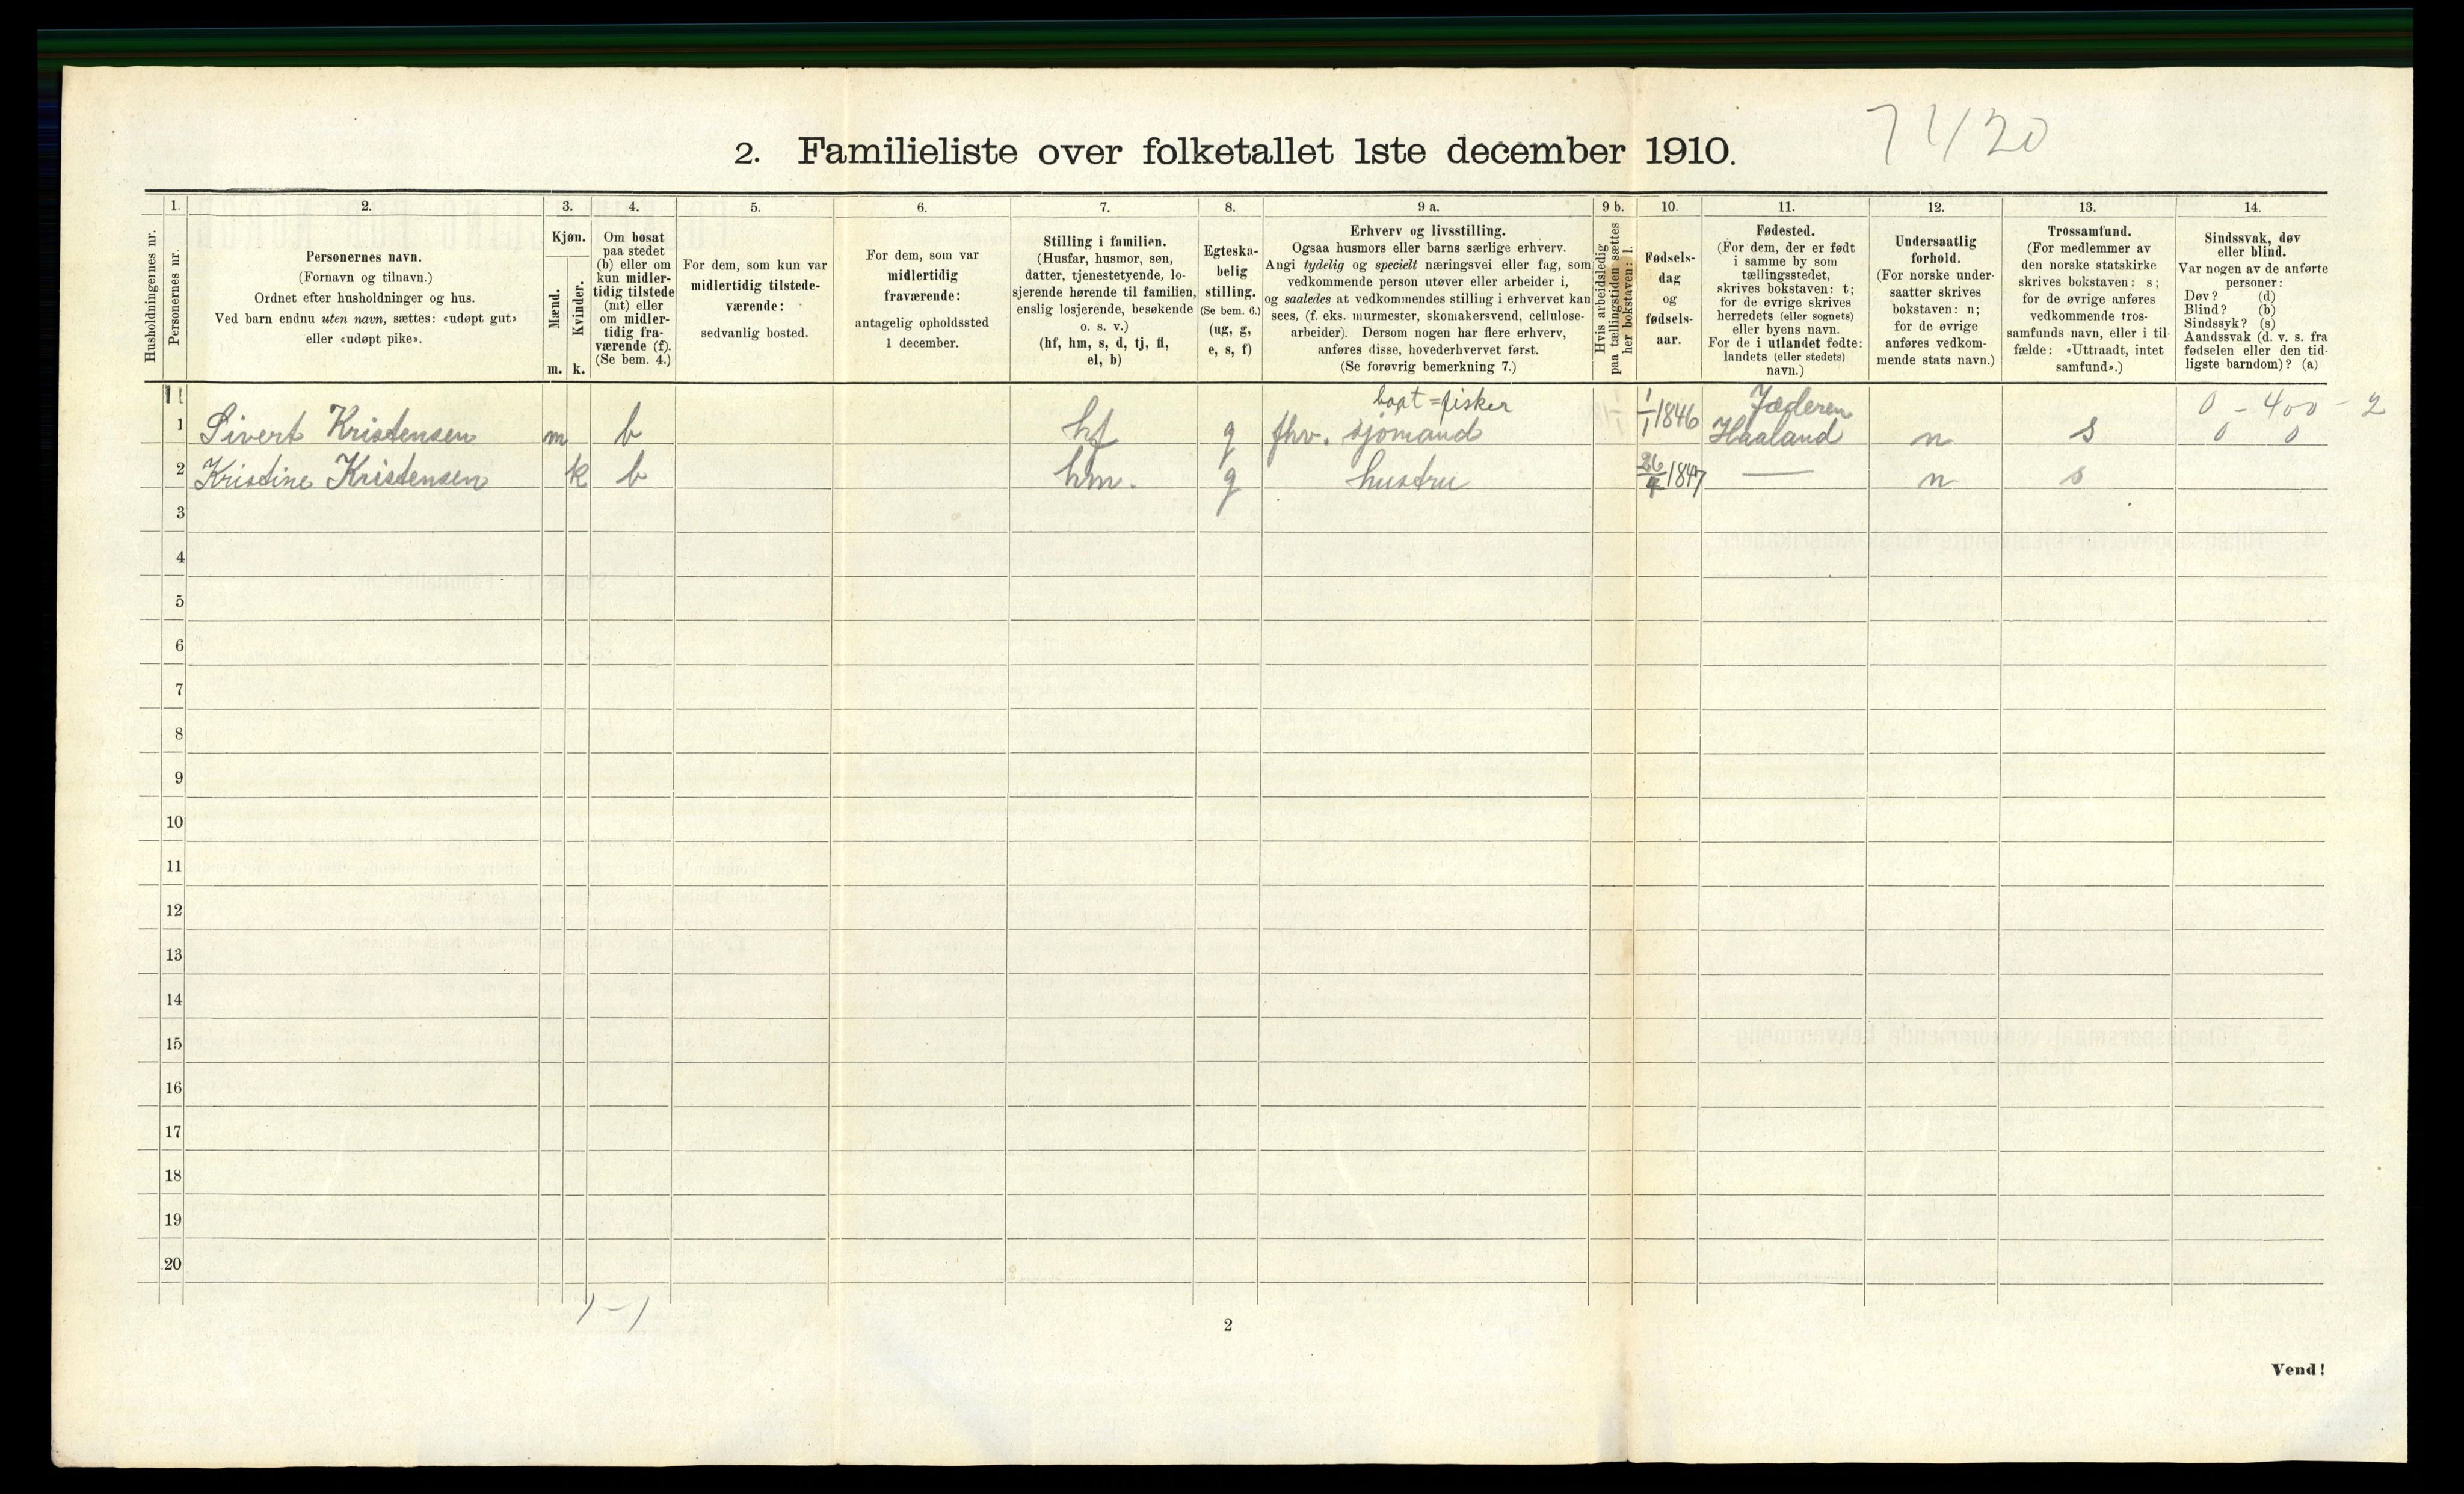 7420
2. Familieliste over folketallet 1ste december 1910.
Husholdningernes nr.
1. Personernes nr.
2. Personernes navn.
(Fornavn og tilnavn.)
Ordnet efter husholdninger og hus.
Ved barn endnu uten navn, sættes: «udøpt gut»
eller «udøpt pike».
3. Kjøn.
Mænd. m.
Kvinder. k.
4. Om bosat
paa stedet
(b) eller om
kun midler-
tidig tilstede
(mt) eller
om midler-
tidig fra-
værende (f).
(Se bem. 4.)
5. For dem, som kun var
midlertidig tilstede-
værende:
sedvanlig bosted.
6. For dem, som var
midlertidig
fraværende:
antagelig opholdssted
1 december.
7. Stilling i familien.
(Husfar, husmor, søn,
datter, tjenestetyende, lo-
sjerende hørende til familien,
enslig losjerende, besøkende
o. s. v.)
(hf, hm, s, d, tj, fl,
el, b)
8. Egteska-
belig
stilling.
(Se bem. 6.)
(ug, g,
e, s, f)
9 a. Erhverv og livsstilling.
Ogsaa husmors eller barns særlige erhverv.
Angi tydelig og specielt næringsvei eller fag, som
vedkommende person utøver eller arbeider i,
og saaledes at vedkommendes stilling i erhvervet kan
sees, (f. eks. murmester, skomakersvend, cellulose-
arbeider). Dersom nogen har flere erhverv,
anføres disse, hovederhvervet først.
(Se forøvrig bemerkning 7.)
9 b. Hvis arbeidsledig
paa tællingstiden sættes
her bokstaven: l.
10. Fødsels-
dag
og
fødsels-
aar.
11. Fødested.
(For dem, der er født
i samme by som
tællingsstedet,
skrives bokstaven: t;
for de øvrige skrives
herredets (eller sognets)
eller byens navn.
For de i utlandet fødte:
landets (eller stedets)
navn.)
12. Undersaatlig
forhold.
(For norske under-
saatter skrives
bokstaven: n;
for de øvrige
anføres vedkom-
mende stats navn.)
13. Trossamfund.
(For medlemmer av
den norske statskirke
skrives bokstaven: s;
for de øvrige anføres
vedkommende tros-
samfunds navn, eller i til-
fælde: «Uttraadt, intet
samfund».)
14. Sindssvak, døv
eller blind.
Var nogen av de anførte
personer:
Døv? (d)
Blind? (b)
Sindssyk? (s)
Aandssvak (d. v. s. fra
fødselen eller den tid-
ligste barndom)? (a)
baat=fisker Jæderen 0 - 400 - 2
1 Sivert Kristensen m b hf g fhv. sjømand 1/1 1846 Haaland n s 0 0
2 Kristine Kristensen k b hm. g hustru 26/4 1847 — n s
3
4
5
6
7
8
9
10
11
12
13
14
15
16
17
18
19
20
1-1
2
Vend!